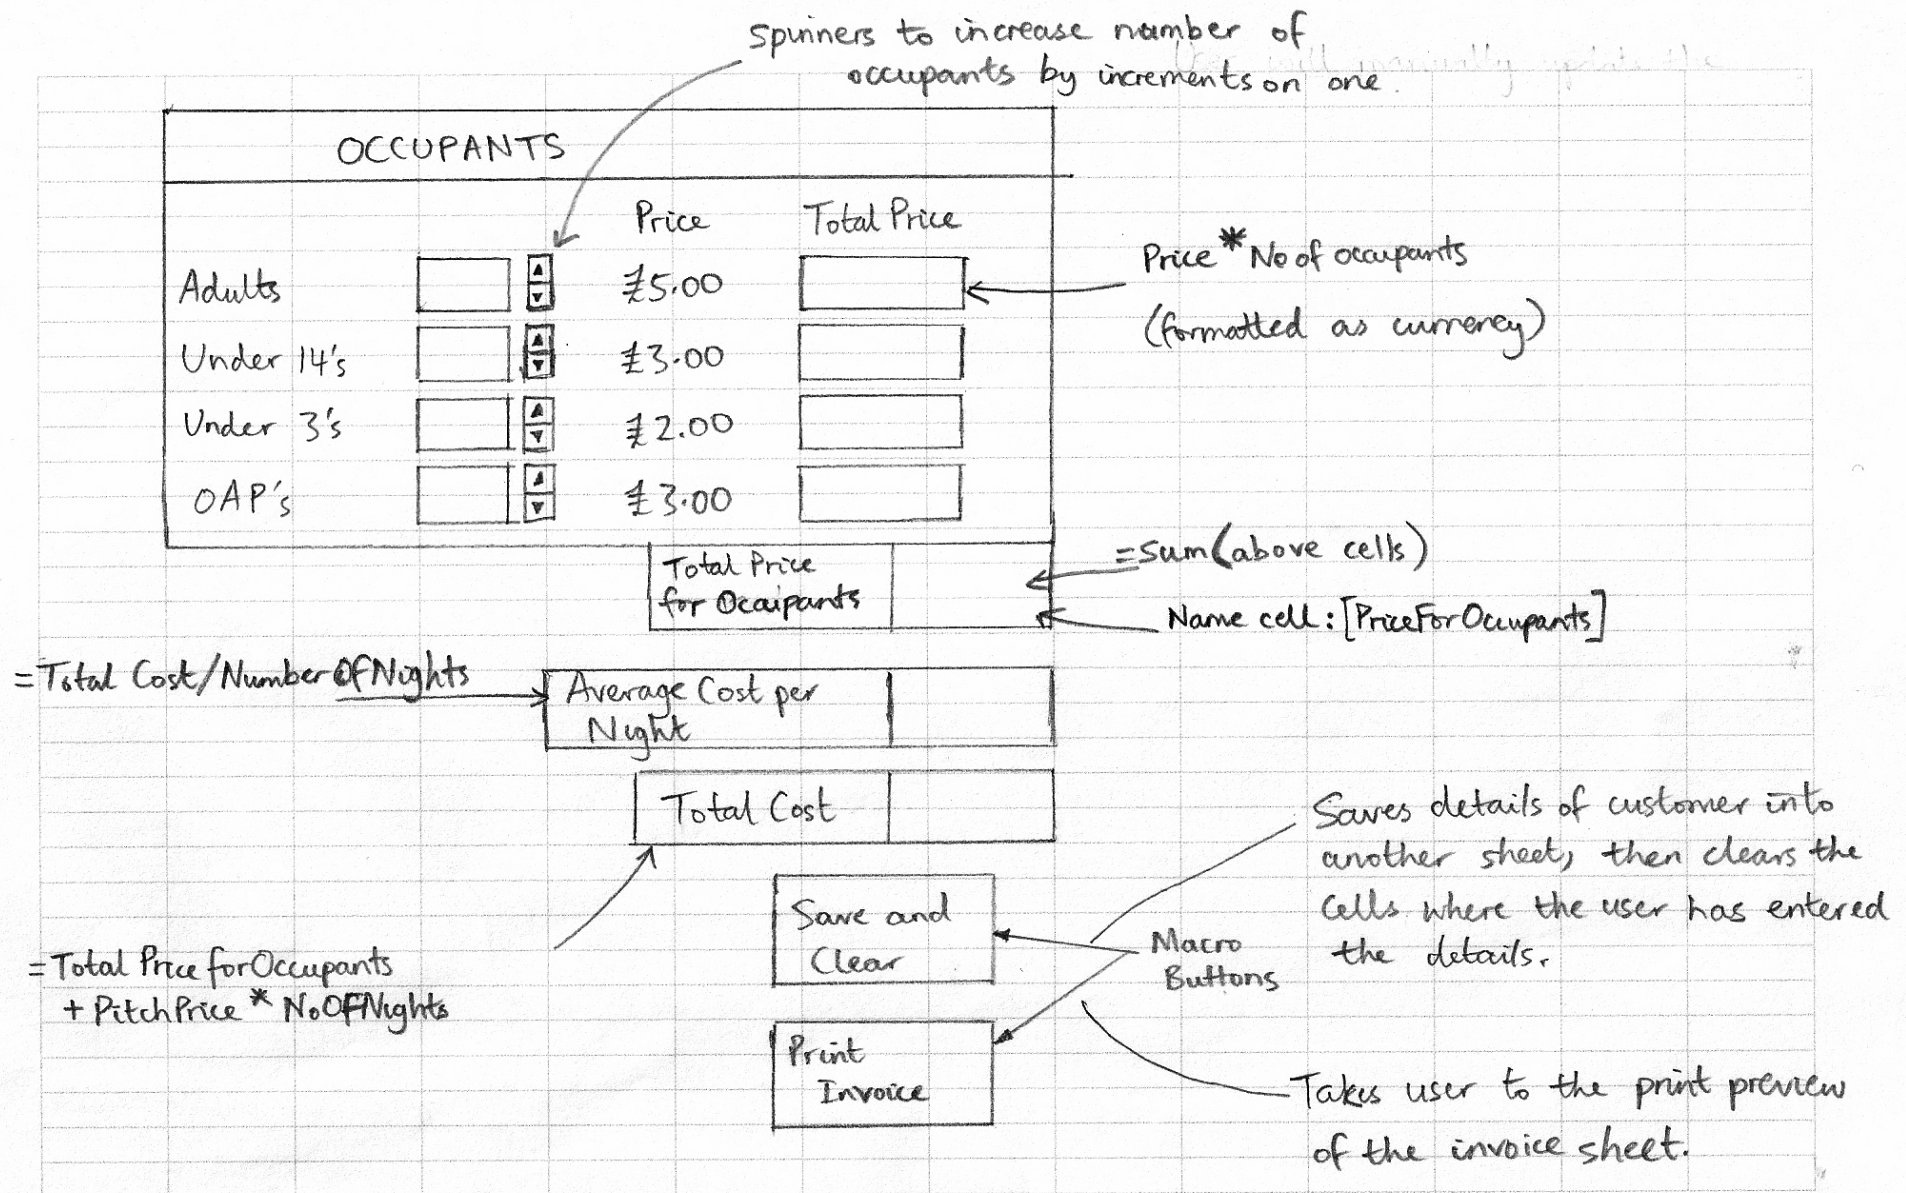 Spinners to increase number of
occupants by increments on one.
User will manually update the
OCCUPANTS
Price Total Price
Adults £5.00
Under 14's £3.00
Under 3's £2.00
OAP's £3.00
Price * No of occupants
(formatted as currency)
Total Price
for Occupants
=Sum(above cells)
Name cell: [PriceForOccupants]
=Total Cost/NumberOfNights
Average Cost per
Night
Total Cost
=Total Price for Occupants
+ PitchPrice * NoOfNights
Save and
Clear
Print
Invoice
Macro
Buttons
Saves details of customer into
another sheet, then clears the
cells where the user has entered
the details.
Takes user to the print preview
of the invoice sheet.